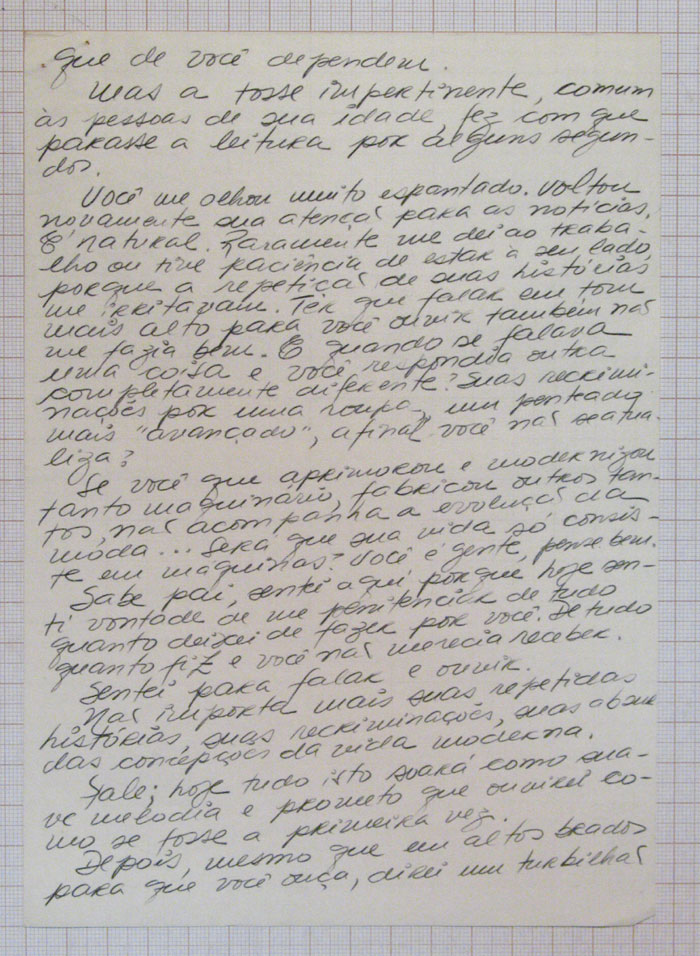 que de você dependem.
Mas a tosse impertinente, comum
às pessoas de sua idade, fez com que
parasse a leitura por alguns segun-
dos.
Você me olhou muito espantado. Voltou
novamente sua atençaĩ para as notícias.
É natural. Raramente me dei ao traba-
lho ou tive paciência de estar a seu lado,
porque a repetiçaĩ de suas histórias
me irritavam. Ter que falar em tom
mais alto para você ouvir também naĩ
me fazia bem. E quando se falava
uma coisa e você respondia outra
completamente diferente? Suas recrimi-
nações por uma roupa, um penteado
mais "avançado", afinal você naĩ se atua-
liza?
Se você que aprimorou e modernizou
tanto maquinário, fabricou outros tan-
tos, naĩ acompanha a evoluçaĩ da
moda... Será que sua vida só consis-
te em maquinas? Você é gente, pense bem.
Sabe pai, sentei aqui porque hoje sen-
ti vontade de me penitenciar de tudo
quanto deixei de fazer por você. De tudo
quanto fiz e você naĩ merecia receber.
Sentei para falar e ouvir.
Naĩ importa mais suas repetidas
histórias, suas recriminações, suas absur
das concepções da vida moderna.
Fale; hoje tudo isto soará como sua-
ve melodia e prometo que ouvirei co-
mo se fosse a primeira vez.
Depois, mesmo que em altos brados
para que você ouça, direi um turbilhaĩ